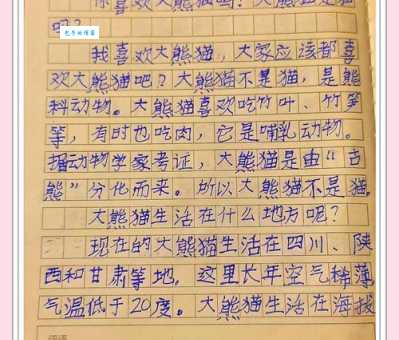 你喜欢大熊猫吗?大熊猫是猫
吗?
我喜欢大熊猫,大家应该都喜
欢大熊猫吧?大熊猫不是猫,是熊
科动物。大熊猫喜欢吃竹叶、竹笋
等,有时也吃肉,它是哺乳动物。
据动物学家考证,大熊猫是由“古
熊”分化而来。所以大熊猫不是猫。
大熊猫生活在什么地方呢?
现在的大熊猫生活在四川、陕
西和甘肃等地,这里长年空气稀薄,
气温低于20度。大熊猫生活在海拔